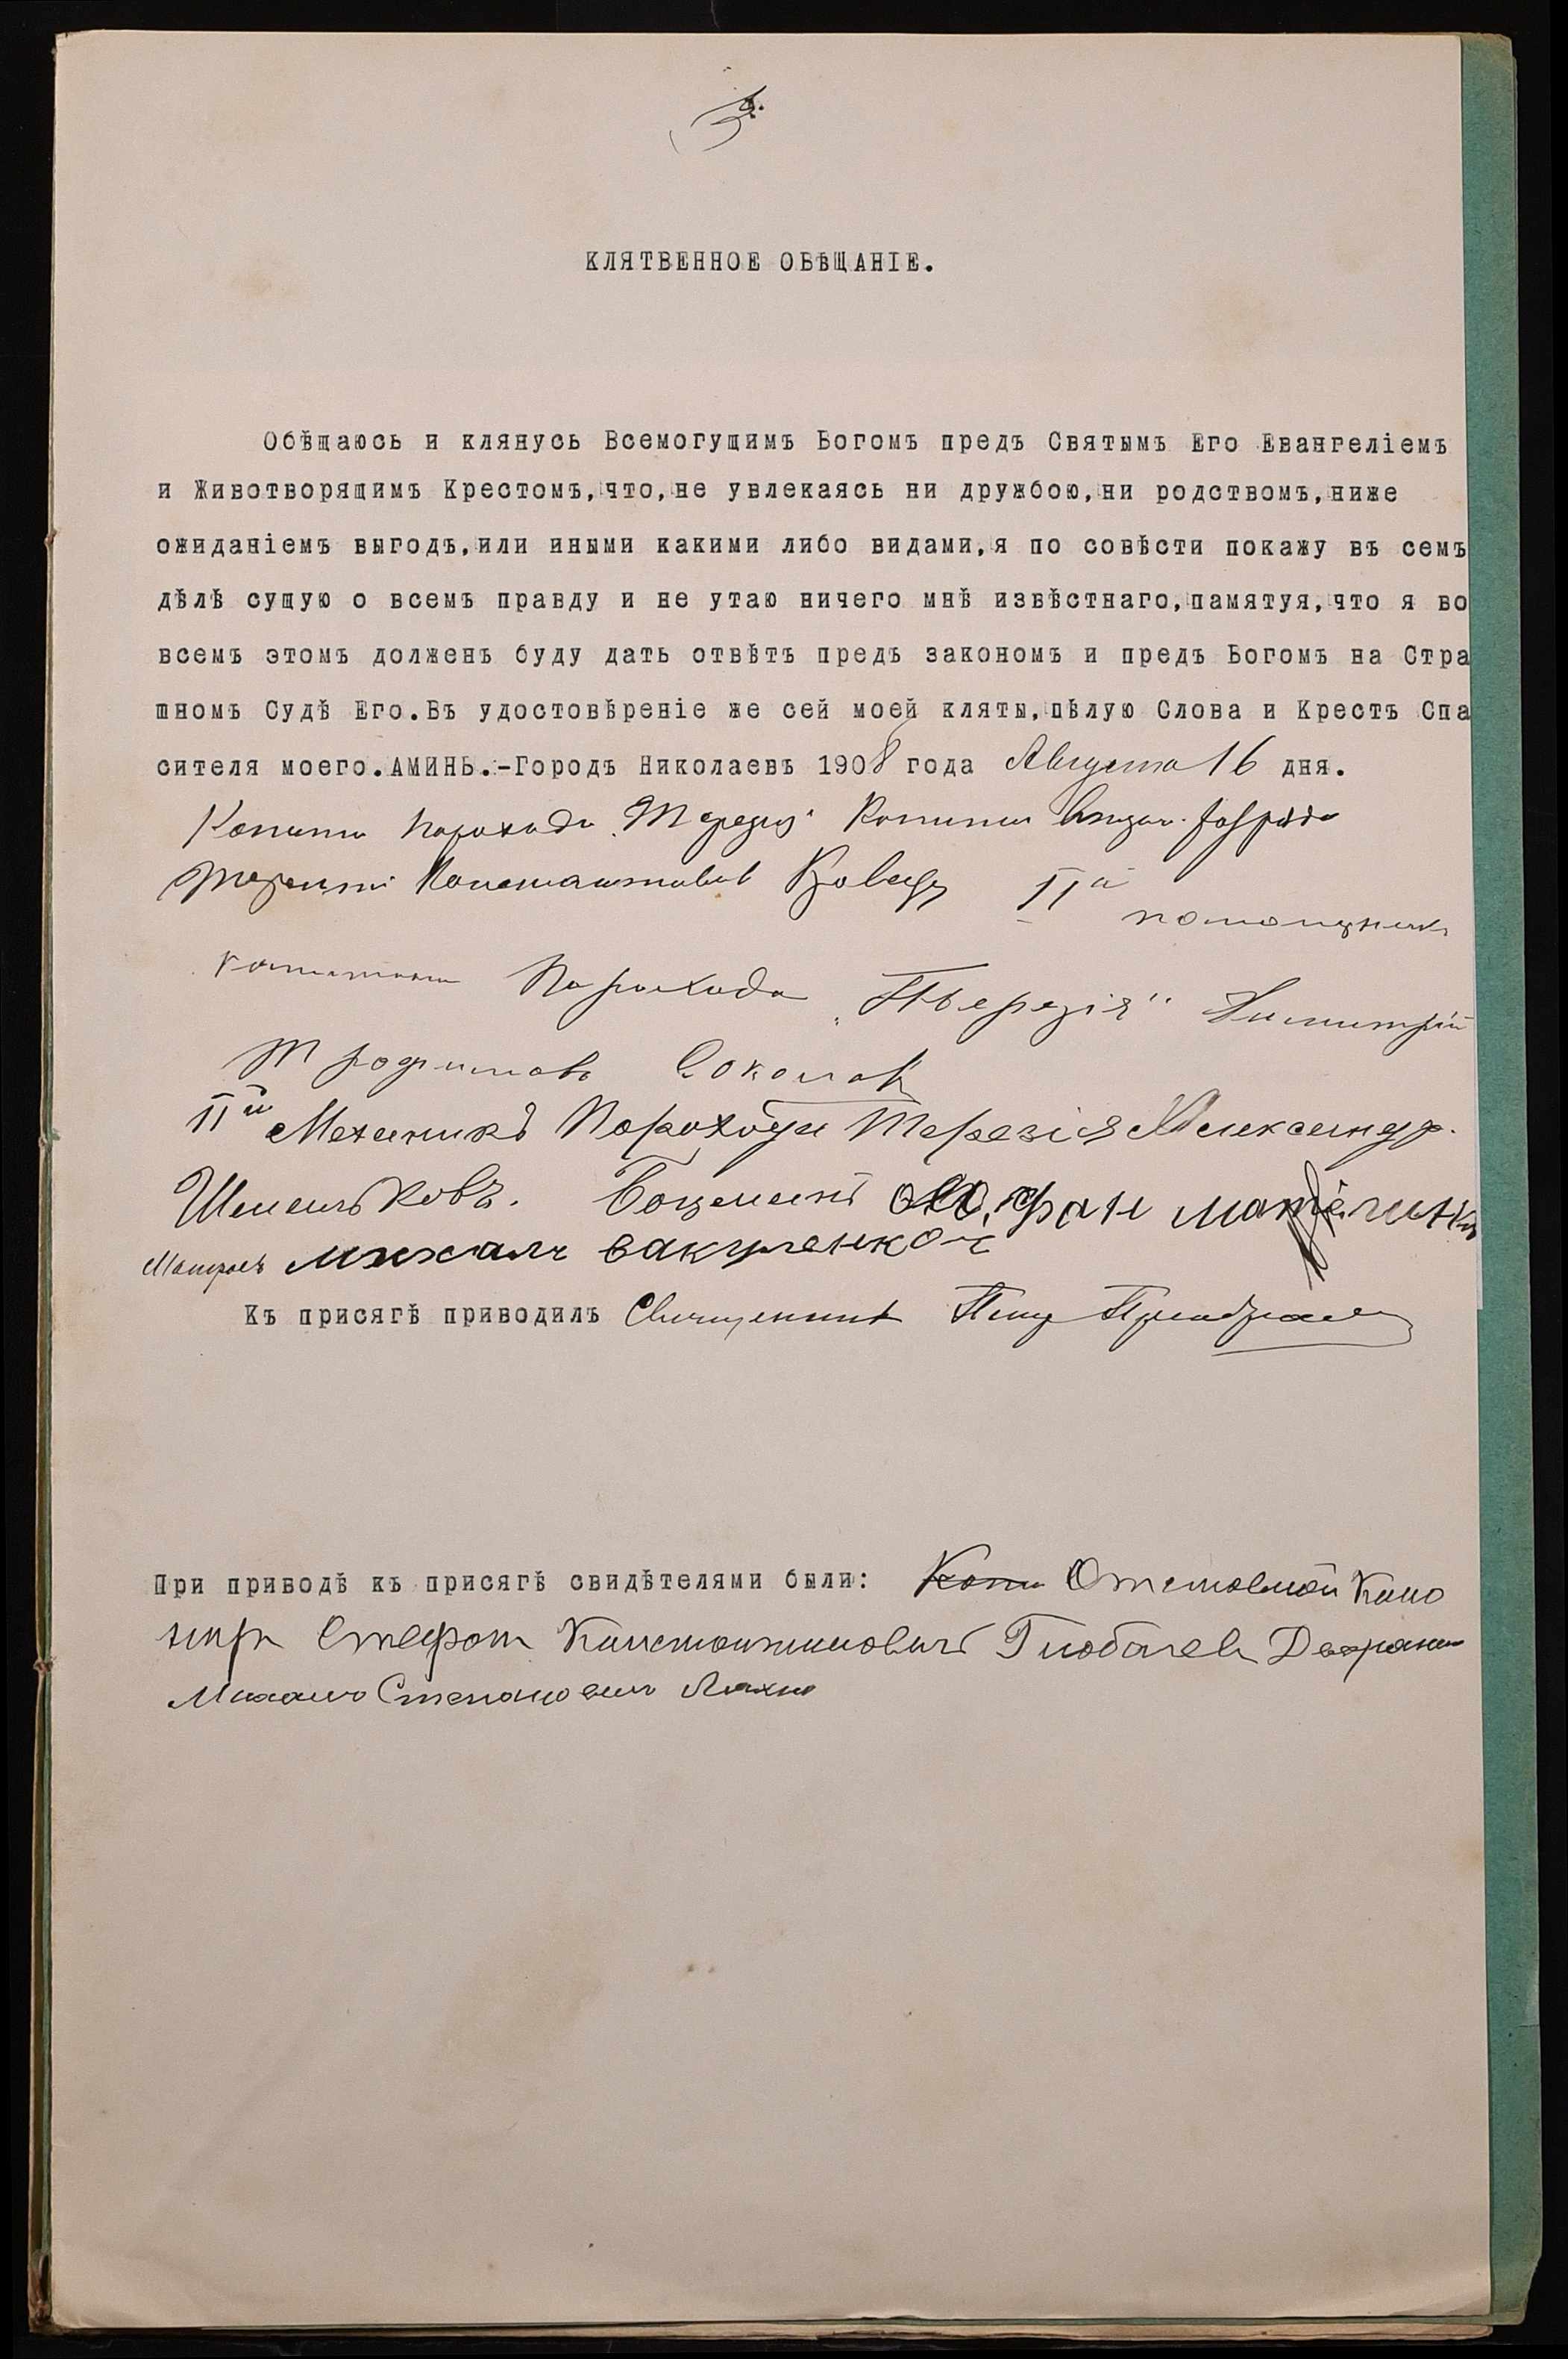 КЛЯТВЕННОЕ ОБѢЩАНІЕ.
Обѣщаюсь и клянусь Всемогущимъ Богомъ предъ Святымъ Его Евангеліемъ
и Животворящимъ Крестомъ, что, не увлекаясь ни дружбою, ни родствомъ, ниже
ожиданіемъ выгодъ, или иными какими либо видами, я по совѣсти покажу въ семъ
дѣлѣ сущую о всемъ правду и не утаю ничего мнѣ извѣстнаго, памятуя, что я во
всемъ этомъ долженъ буду дать отвѣтъ предъ закономъ и предъ Богомъ на Стра
шномъ Судѣ Его. Въ удостовѣреніе же сей моей кляты, цѣлую Слова и Крестъ Спа
сителя моего. АМИНЬ.-Городъ Николаевъ 1908 года Августа 16 дня.
парохода
IIй помощникъ
капитана Парохода „Терезія" Димитрій
Трофимовъ Соколов
IIй Механикъ Парохода Терезія Александр.
Шеменьковъ. Боцманъ
Матросъ михаил вакуленко
Къ присягѣ приводилъ Священникъ
При приводѣ къ присягѣ свидѣтелями были: Отставной Кано
нир Стефан Константиновичъ Глобачев Дворянин
Михаил Степанович Ляхно